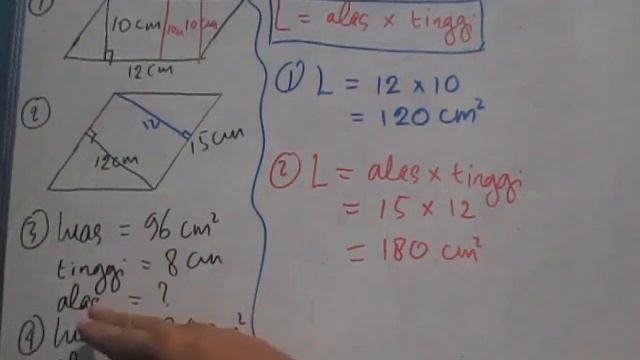 ①
10 cm
10m
10 cm
12 cm
②
12
12 cm
15 cm
③ luas = 96 cm²
tinggi = 8 cm
alas = ?
④
L = alas x tinggi
① L = 12 x 10
= 120 cm²
② L = alas x tinggi
= 15 x 12
= 180 cm²